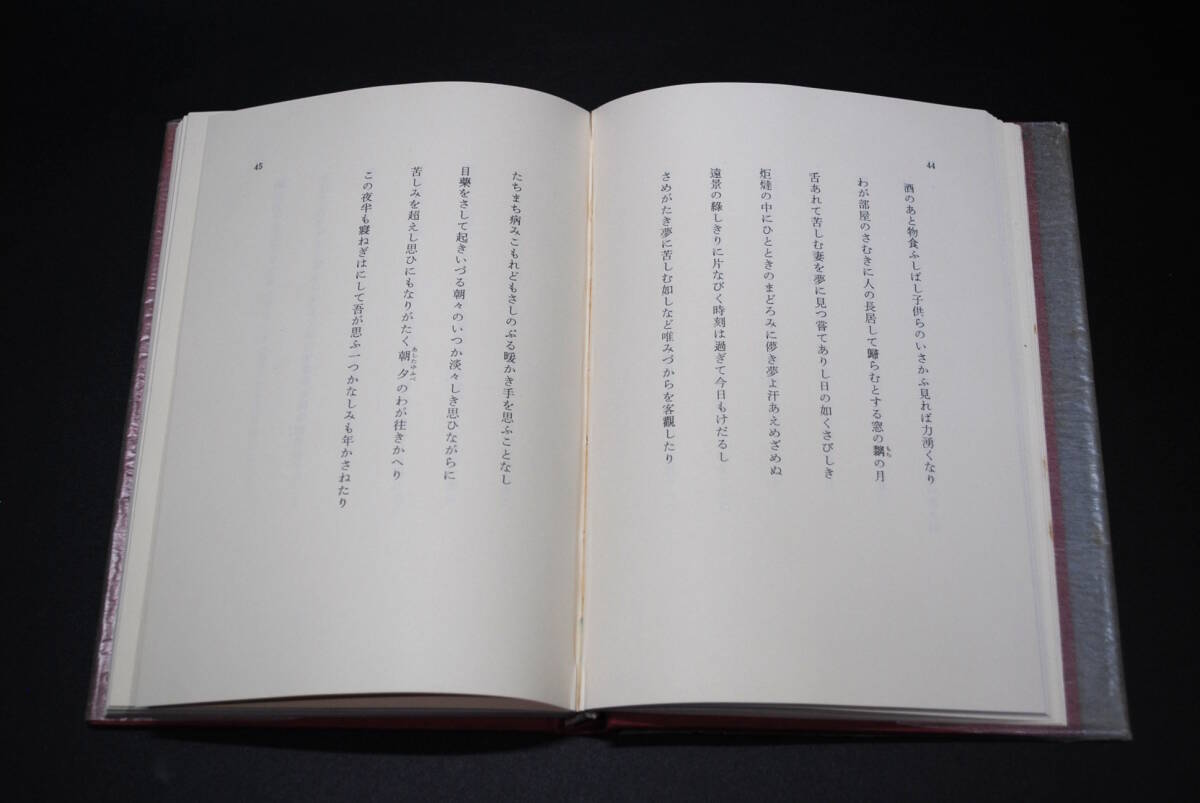 44
酒のあと物食ふしばし子供らのいさかふ見れば力湧くなり
わが部屋のさむきに人の長居して歸らむとする窓の黐の月
もち
舌あれて苦しむ妻を夢に見つ嘗てありし日の如くさびしき
炬燵の中にひとときのまどろみに儚き夢よ汗あえめざめぬ
遠景の綠しきりに片なびく時刻は過ぎて今日もけだるし
さめがたき夢に苦しむ如しなど唯みづからを客觀したり
たちまち病みこもれどもさしのぶる暖かき手を思ふことなし
目藥をさして起きいづる朝々のいつか淡々しき思ひながらに
苦しみを超えし思ひにもなりがたく朝夕のわが往きかへり
あしたゆふべ
この夜半も寢ねぎはにして吾が思ふ一つかなしみも年かさねたり
45